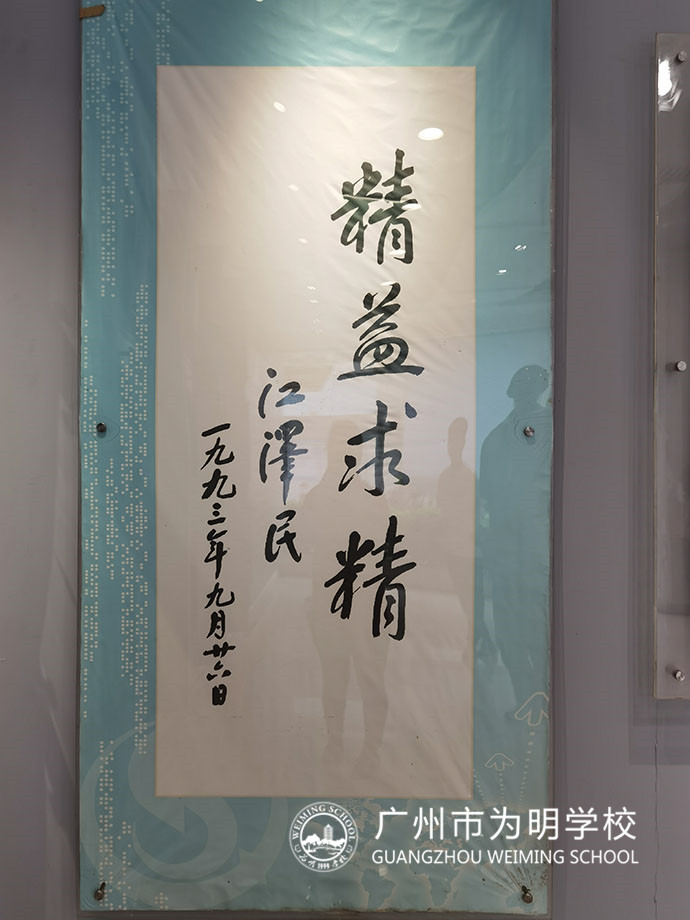 精益求精
江泽民
一九九三年九月廿六日
WEIMING SCHOOL
广州市为明学校
GUANGZHOU WEIMING SCHOOL